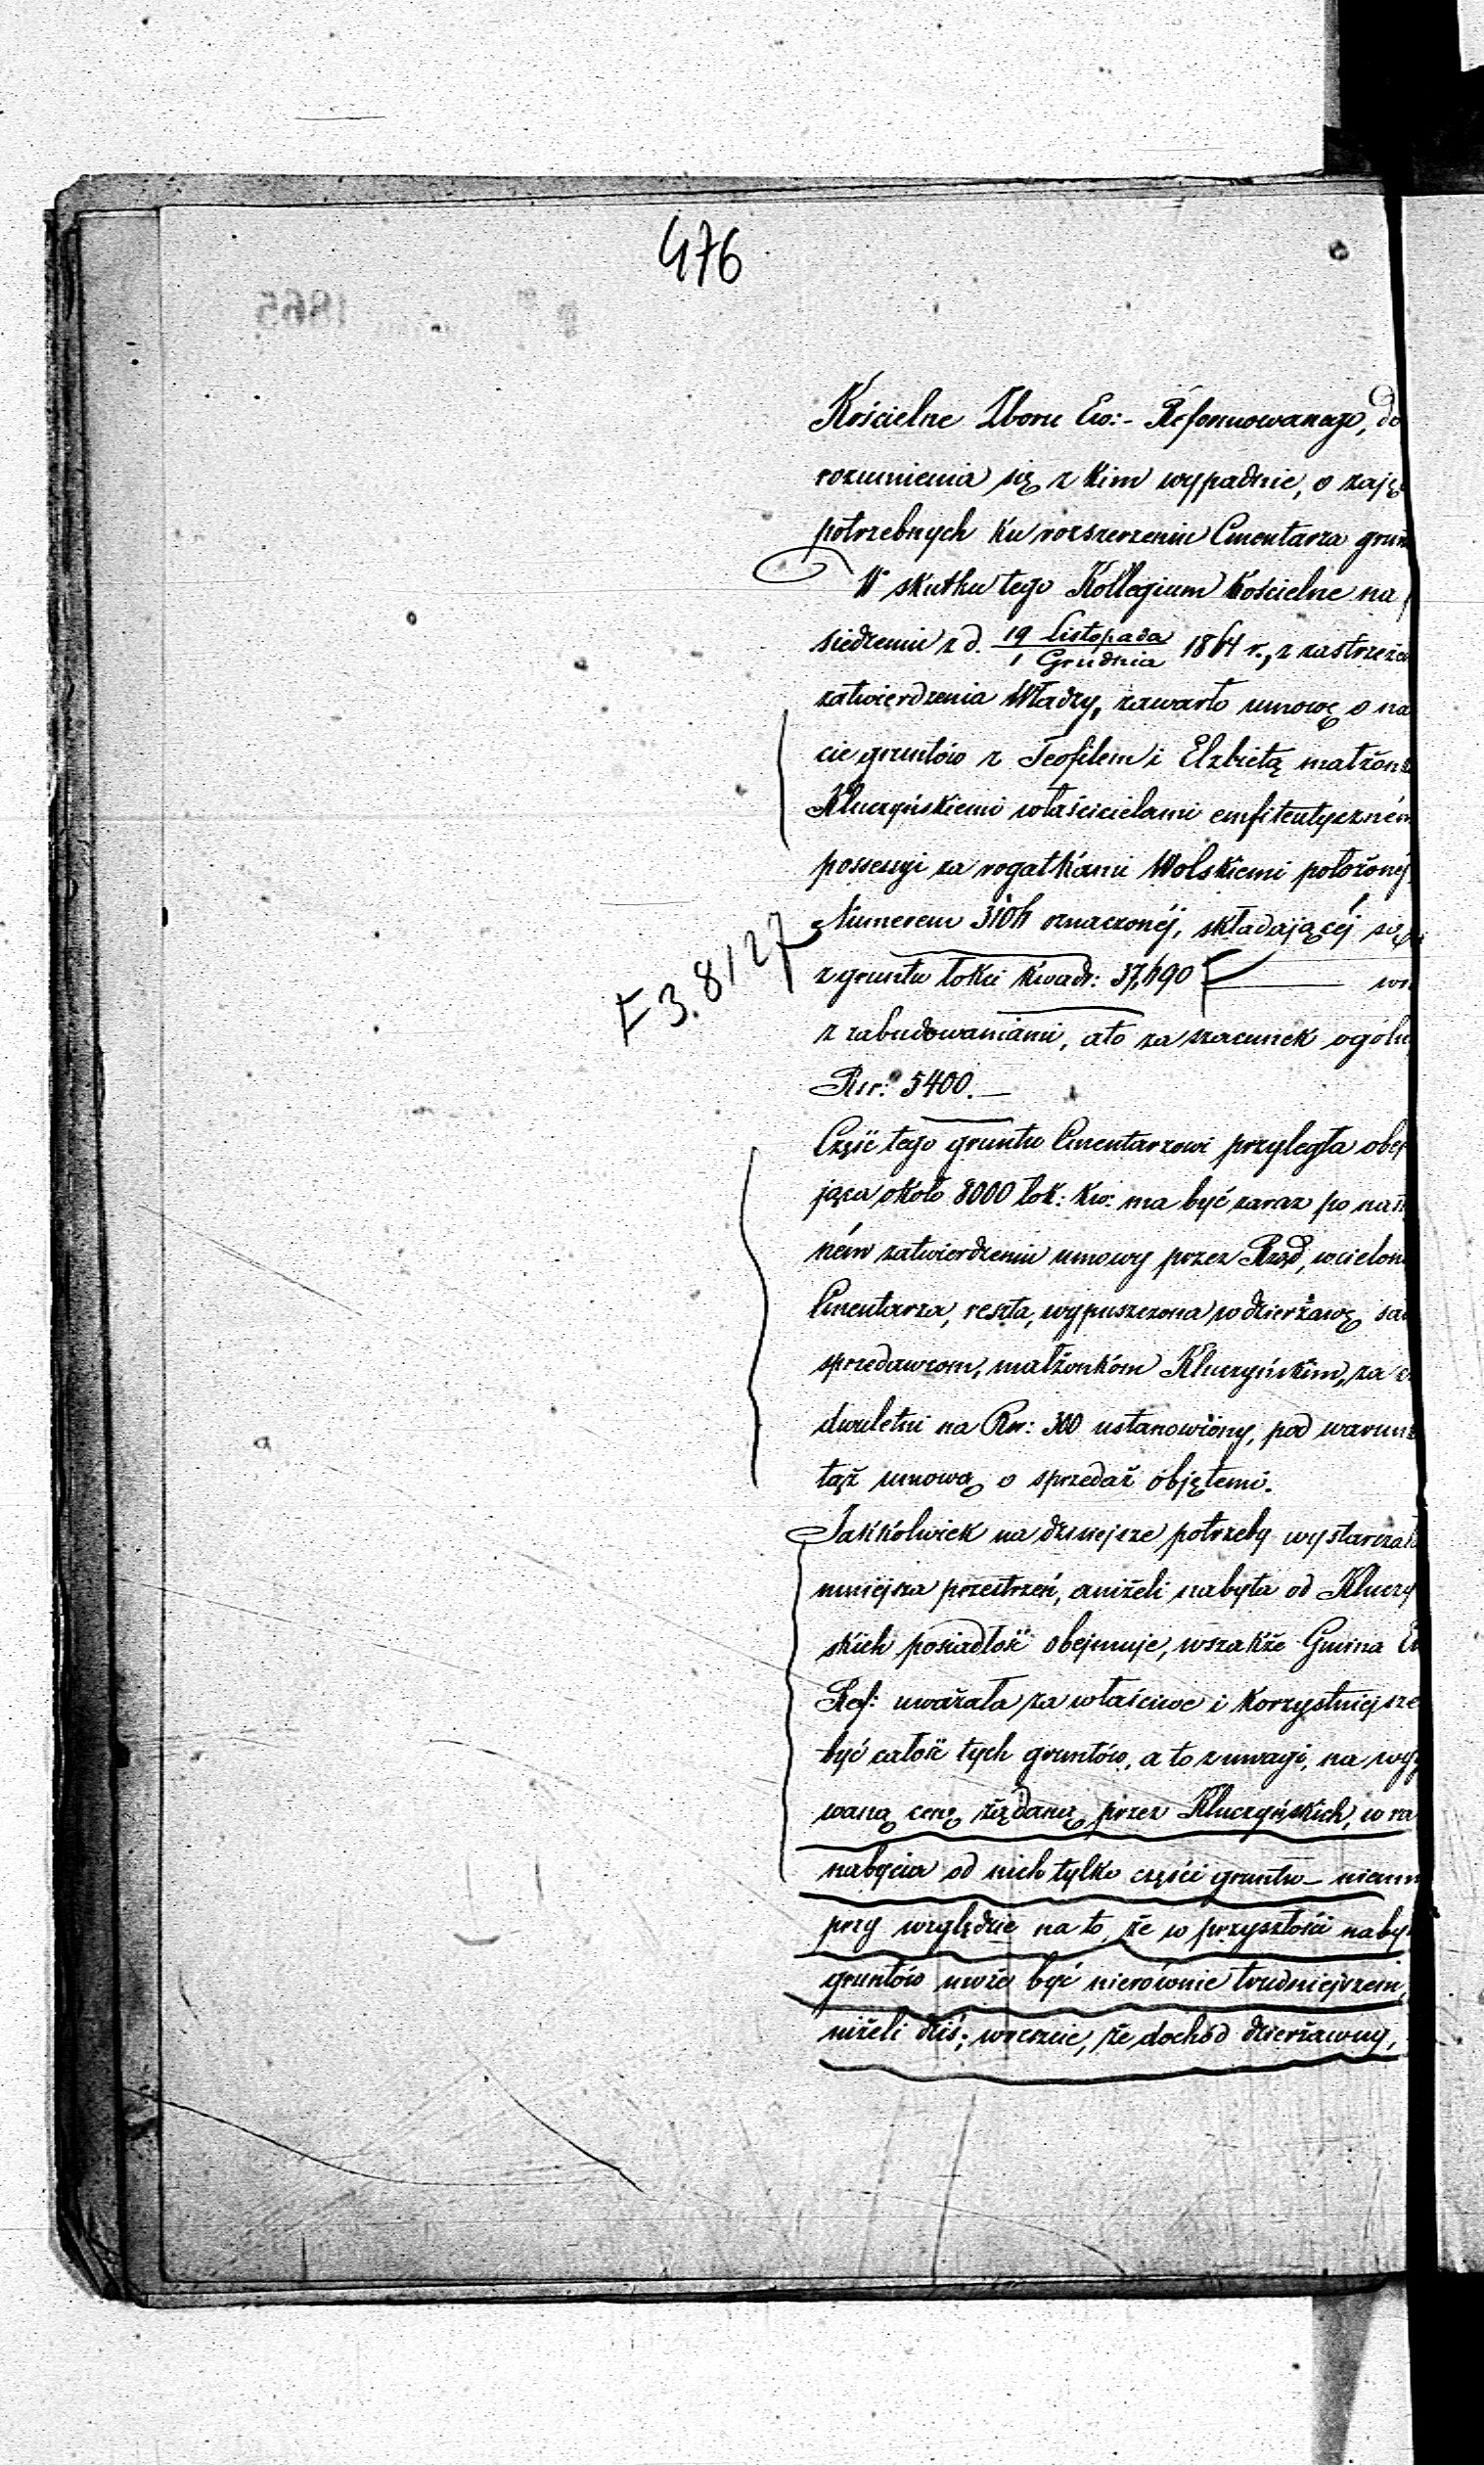 476
1865
Kościelne Zboru Ew:- Reformowanego, do
rozumienia się z kim wypadnie, o zaję
potrzebnych ku rozszerzeniu Cmentarza grun
W skutku tego Kollegium Kościelne na
siedzeniu z d. 19 Listopada / 1 Grudnia 1864 r., z zastrzeże
zatwierdzenia Władzy, zawarło umowę o na
cie gruntów z Teofilem i Elżbietą małżon
Kluczyńskiemi właścicielami emfiteutyczném
possessyi za rogatkami Wolskiemi położonéj
Numerem 310h oznaczonéj, składającéj się
z gruntu łokci kwadr: 37,490 F — wr
F 3.8127
z zabudowaniami, a to za szacunek ogóln
Rsr: 5400. —
Część tego gruntu Cmentarzowi przyległa obej
jąca około 8000 łok: kw: ma być zaraz po nast
ném zatwierdzeniu umowy przez Rząd, wcielon
Cmentarza, reszta, wypuszczona w dzierżawę sam
sprzedawcom, małżonkóm Kluczyńskim, za c
dwuletni na Rsr: 300 ustanowiony, pod warunk
tąż umową o sprzedaż objętemi.
Jakkolwiek na dzisiejsze potrzeby wystarczał
mniejsza przestrzeń, aniżeli nabyta od Kluczy
skich posiadłość obejmuje, wszakże Gmina Ew
Ref: uważała za właściwe i korzystniejsze
być całość tych gruntów, a to z uwagi, na wyg
waną cenę żądaną przez Kluczyńskich, w ra
nabycia od nich tylko części gruntu — niemn
przy względzie na to, że w przyszłości naby
gruntów może być nierównie trudniejszem,
niżeli dziś; wreszcie, że dochód dzierżawny,